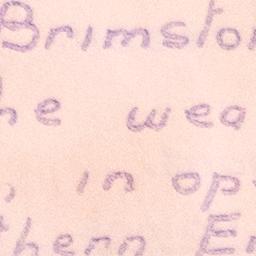 Brimston
he wea
, in op
thern En